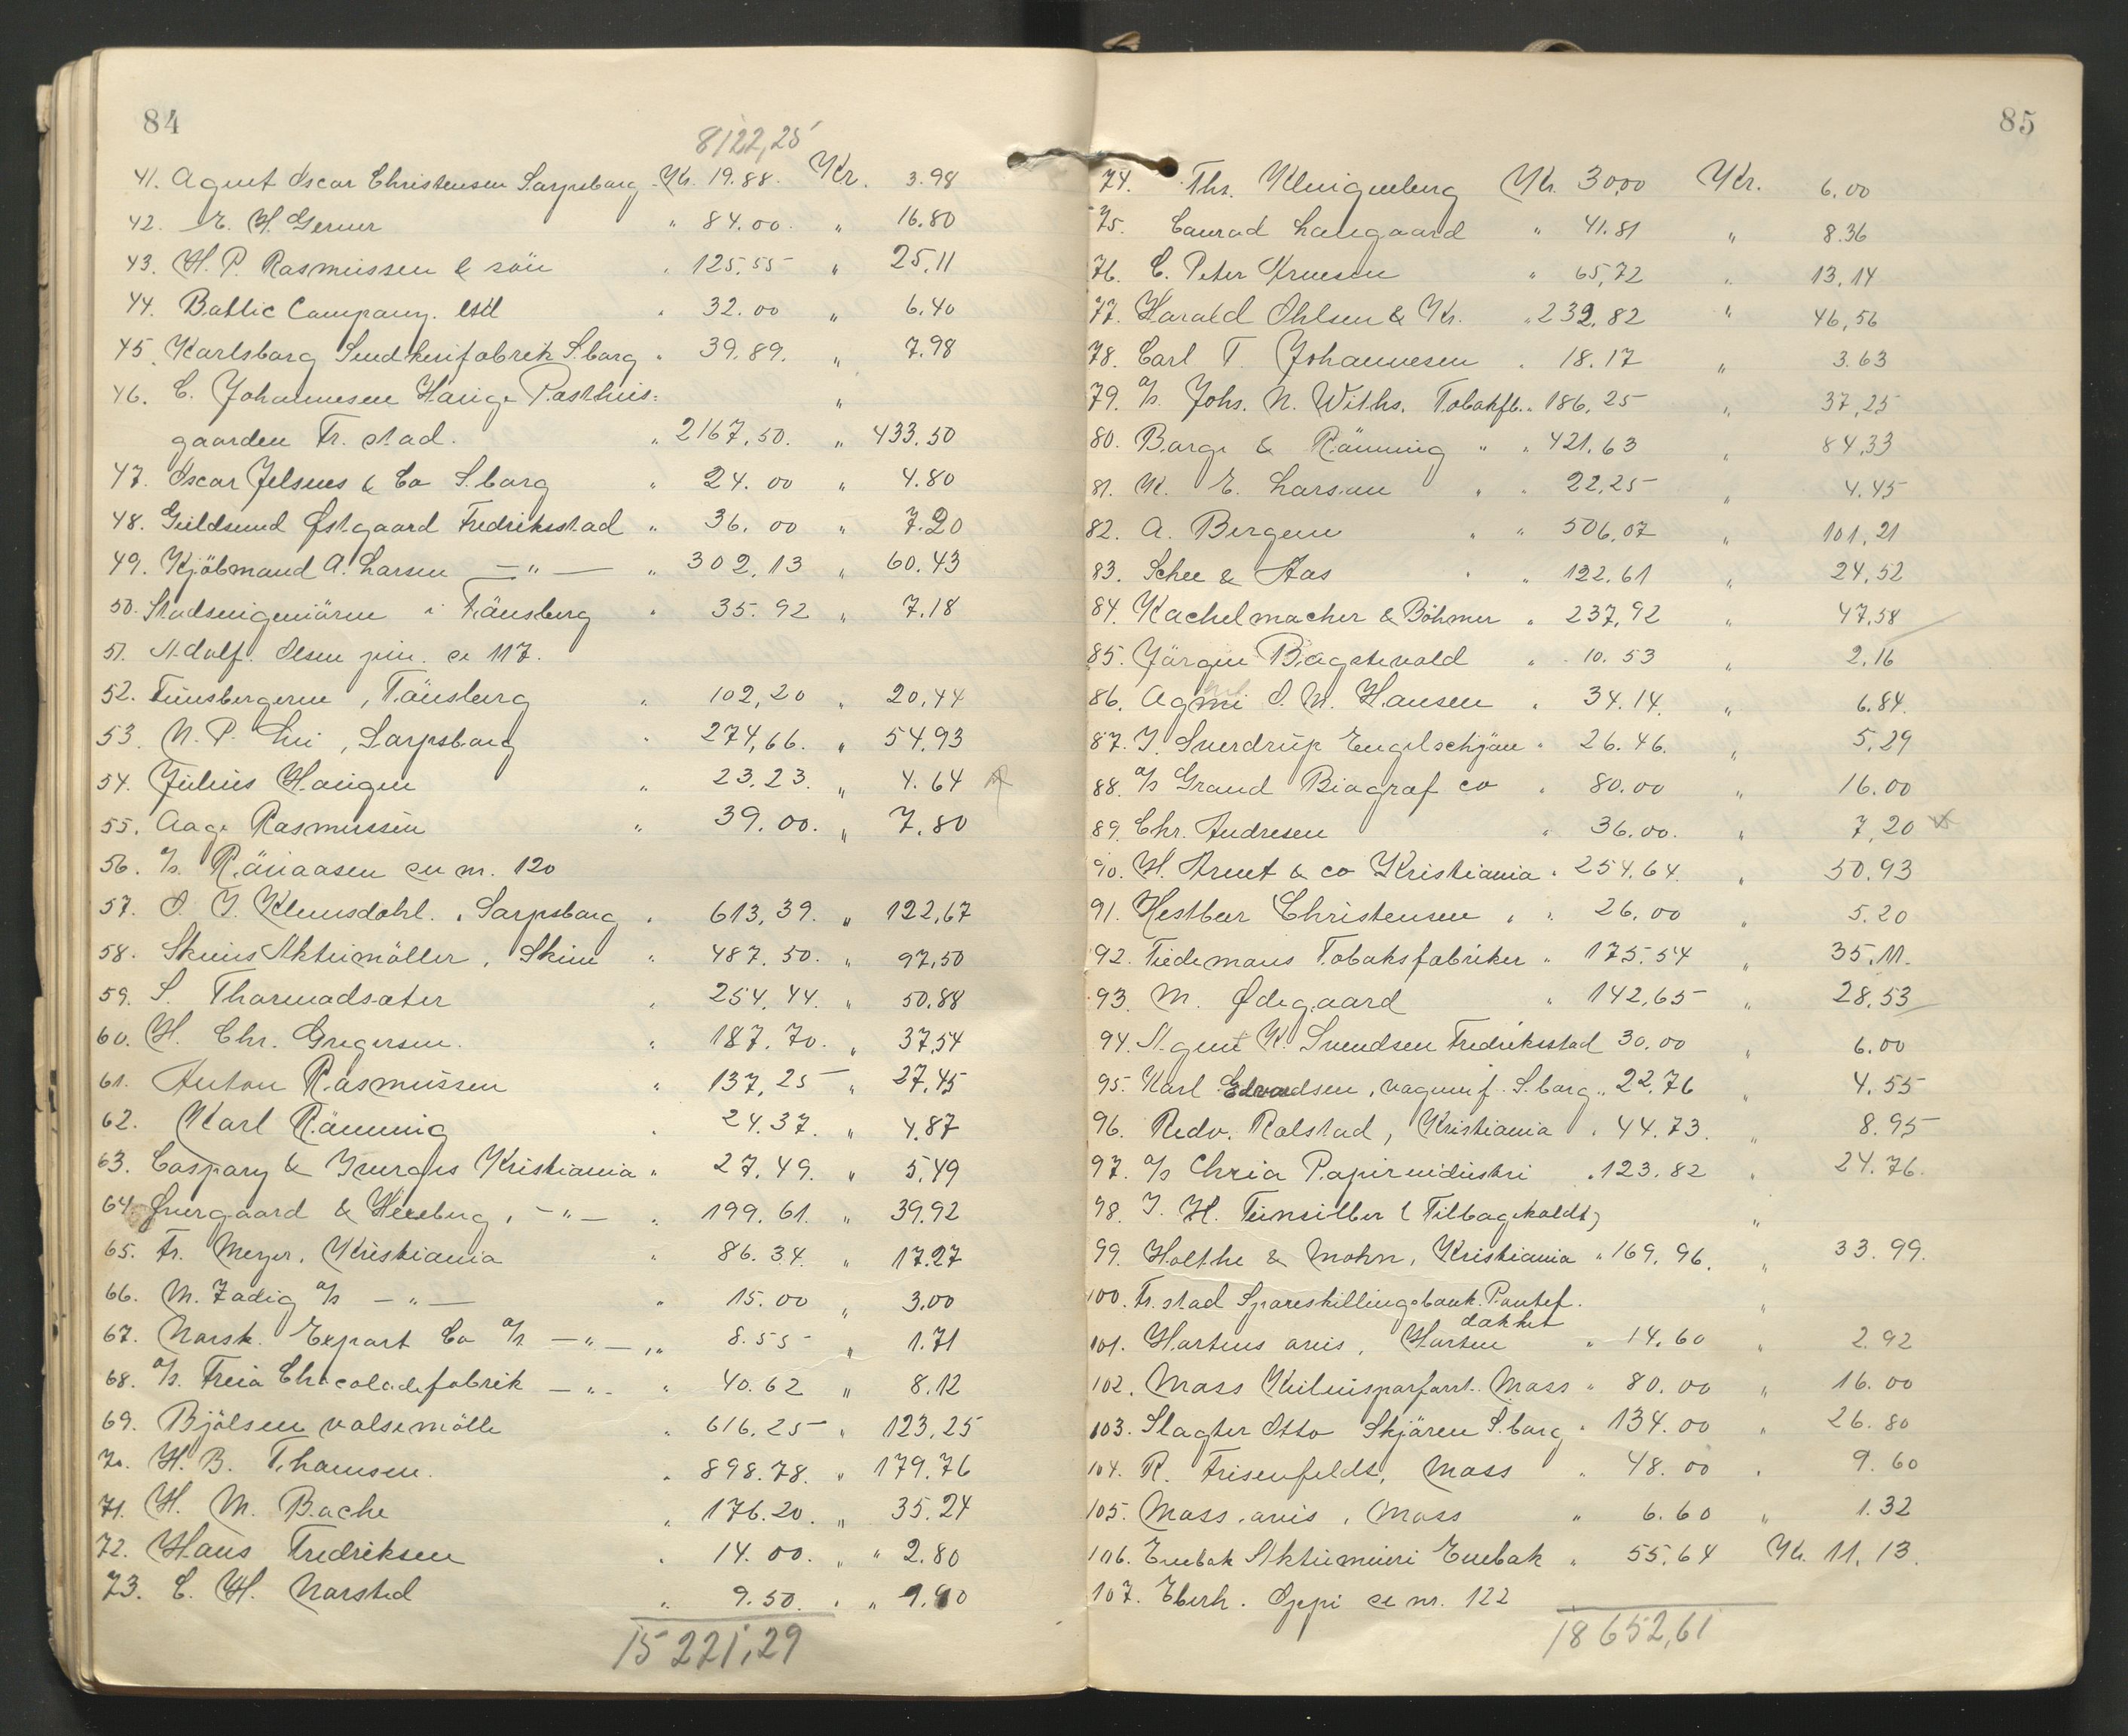 84
8122,25
41. Agent Oscar Christensen Sarpsborg Kr. 19.88. Kr. 3.98
42. E. H. Gerner " 84.00. " 16.80
43. H. P. Rasmussen & sön " 125.55 " 25,11
44. Baltic Company. ltd " 32.00 " 6.40
45. Karlsborg Sendkurifabrik S.borg " 39.89. " 7.98
46. C. Johannesen Hauge Posthus= "
gaarden Fr. stad. " 2167,50. " 433.50
47. Oscar Jelsnes & Co S.borg " 24.00 " 4.80
48. Guldsmed Østgaard Fredriksstad " 36.00 " 7.20
49. Kjöbmand A. Larsen —"— " 302,13 " 60.43
50. Stadsingeniören i Tönsberg " 35.92 " 7.18
51. Adolf. Olsen jun. se 117.
52. Tunsbergeren, Tönsberg " 102,20 " 20,44
53. N. P. Lie, Sarpsborg " 274,66. " 54,93
54. Julius Haugen " 23,23. " 4.64
55. Aage Rasmussen " 39.00. " 7.80
56. a/s. Rönaasen se nr. 120
57. O. J. Klemsdahl., Sarpsborg " 613,39. " 122,67
58. Skiens Aktiemöller, Skien " 487.50. " 97,50
59. S. Thormodsæter " 254,44. " 50,88
60. H. Chr. Gregersen. " 187.70. " 37,54
61. Anton Rasmussen " 137,25 " 27,45
62. Karl Rönning " 24.37. " 4,87
63. Caspary & Kristiania " 27,49. " 5,49
64. Øvergaard & Heeberg, —"— " 199.61. " 39.92
65. Fr. Meyer, Kristiania " 86.34. " 17.27
66. M. Zadig a/s —"— " 15.00 " 3,00
67. Norsk. Export Co a/s —"— " 8.55 " 1.71
68. a/s. Freia Chocoladefabrik —"— " 40.62 " 8.12
69. Bjölsen valsemölle " 616,25 " 123,25
70. H. B. Thomsen. " 898.78. " 179.76
71. H. M. Bache " 176.20. " 35.24
72. Hans Fredriksen " 14.00. " " 2.80
73. C. H. Norsted " 9.50. " " 1.90
15 221,29
85
74. Ths. Klingenberg Kr. 30,00 Kr. 6.00
75. Conrad Langaard " 41.81 " 8.36
76. C. Peter Knusen " 65,72 " 13,14
77. Harald Ohlsen & Kr. " 232,82 " 46,56
78. Carl T. Johannesen " 18.17 " 3.63
79. a/s. Johs. N. Withs. Tobakfb. " 186,25 " 37,25
80. Borge & Rönning " " 421,63 " 84,33
81. K. E. Larsen " " 22,25 " 4.45
82. A. Bergene " " 506,07 " 101,21
83. Schee & Aas " " 122,61 " 24,52
84. Kachelmacher & Böhmer " 237,92 " 47,58
85. Jörgen Bögstevold " 10.53 " 2,16
86. Agent O. M. Hansen " 34.14. " 6.84.
87. J. Sverdrup Engelschjön " 26.46. " 5,29
88. a/s Grand Biograf co " 80.00 " 16.00
89. Chr. Andresen " 36.00. " 7,20
90. H. Arnet & co Kristiania " 254,64. " 50,93
91. Hestbur Christensen " " 26.00 " 5.20
92. Tiedemans Tobaksfabriker " 175.54 " 35,11.
93. M. Ødegaard " 142,65 " 28.53
94. Agent K. Svendsen Fredriksstad 30.00 " 6.00
95. Karl Edvardsen, vognmf. S.borg " 22.76 " 4.55
96. Redv. Rolstad, Kristiania " 44.73. " 8.95
97. a/s Chria Papirindustri " 123.82 " 24.76.
98. J. H. Tünsilber (Tilbagekaldt) "
99. Holthe & Mohn, Kristiania " 169,96. " 33.99.
100. Fr. stad Spareskillingsbank. Pantef. "
dækket
101. Hortens avis, Horten " 14.60 " 2.92
102. Moss Kulimsporforr. Moss " 80.00 " 16.00
103. Slagter Otto Skjören S.borg " 134.00 " 26.80
104. R. Frisenfeldt, Moss " 48.00 " 9.60
105. Moss. avis, Moss " 6.60 " 1.32
106. Enebak Aktiemeieri Enebak " 55,64 Kr. 11,13.
107. Eberh. Oppi se nr. 122
18 652,61